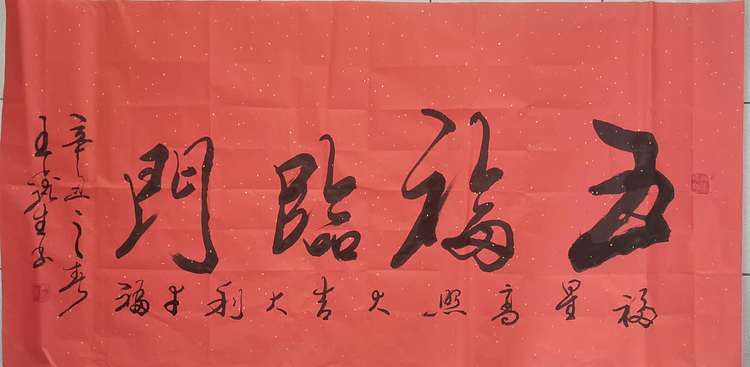 五福臨門
福星高照大吉大利牛福
辛丑之春
王 生书